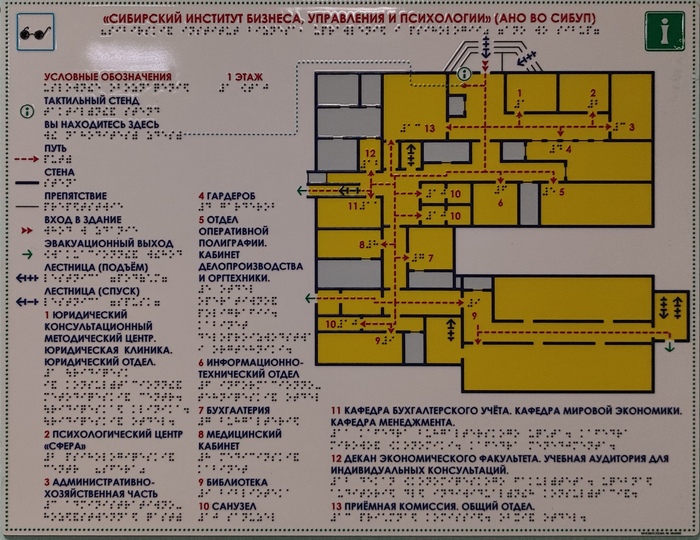 «СИБИРСКИЙ ИНСТИТУТ БИЗНЕСА, УПРАВЛЕНИЯ И ПСИХОЛОГИИ» (АНО ВО СИБУП)
i
УСЛОВНЫЕ ОБОЗНАЧЕНИЯ
1 ЭТАЖ
ТАКТИЛЬНЫЙ СТЕНД
ВЫ НАХОДИТЕСЬ ЗДЕСЬ
ПУТЬ
СТЕНА
ПРЕПЯТСТВИЕ
ВХОД В ЗДАНИЕ
ЭВАКУАЦИОННЫЙ ВЫХОД
ЛЕСТНИЦА (ПОДЪЁМ)
ЛЕСТНИЦА (СПУСК)
1 ЮРИДИЧЕСКИЙ
КОНСУЛЬТАЦИОННЫЙ
МЕТОДИЧЕСКИЙ ЦЕНТР.
ЮРИДИЧЕСКАЯ КЛИНИКА.
ЮРИДИЧЕСКИЙ ОТДЕЛ.
2 ПСИХОЛОГИЧЕСКИЙ ЦЕНТР
«СФЕРА»
3 АДМИНИСТРАТИВНО-
ХОЗЯЙСТВЕННАЯ ЧАСТЬ
4 ГАРДЕРОБ
5 ОТДЕЛ
ОПЕРАТИВНОЙ
ПОЛИГРАФИИ.
КАБИНЕТ
ДЕЛОПРОИЗВОДСТВА
И ОРГТЕХНИКИ.
6 ИНФОРМАЦИОННО-
ТЕХНИЧЕСКИЙ ОТДЕЛ
7 БУХГАЛТЕРИЯ
8 МЕДИЦИНСКИЙ
КАБИНЕТ
9 БИБЛИОТЕКА
10 САНУЗЕЛ
i
1
2
13
3
4
12
10
6
5
11
10
8
7
9
10
9
11 КАФЕДРА БУХГАЛТЕРСКОГО УЧЁТА. КАФЕДРА МИРОВОЙ ЭКОНОМИКИ.
КАФЕДРА МЕНЕДЖМЕНТА.
12 ДЕКАН ЭКОНОМИЧЕСКОГО ФАКУЛЬТЕТА. УЧЕБНАЯ АУДИТОРИЯ ДЛЯ
ИНДИВИДУАЛЬНЫХ КОНСУЛЬТАЦИЙ.
13 ПРИЁМНАЯ КОМИССИЯ. ОБЩИЙ ОТДЕЛ.